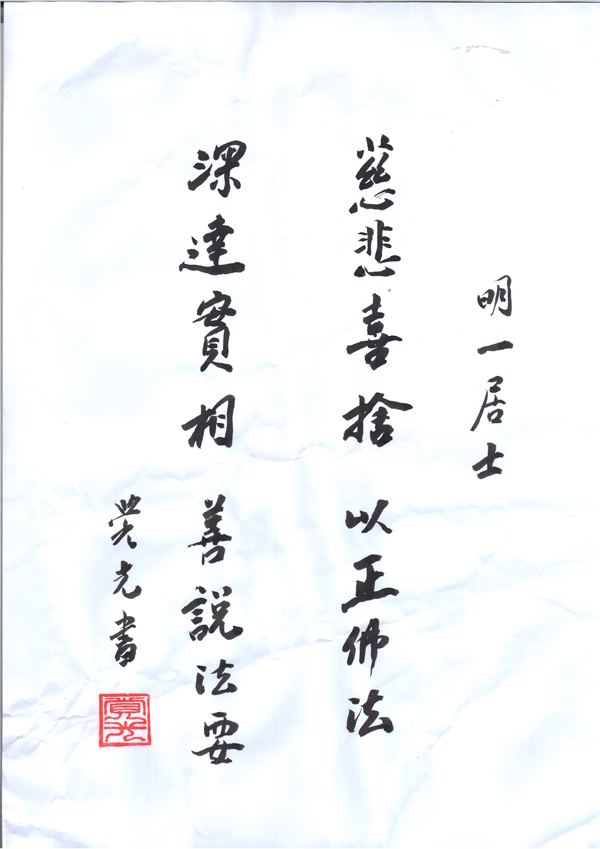 明一居士
慈悲喜捨 以正佛法
深達實相 善說法要
覺光書
覺光